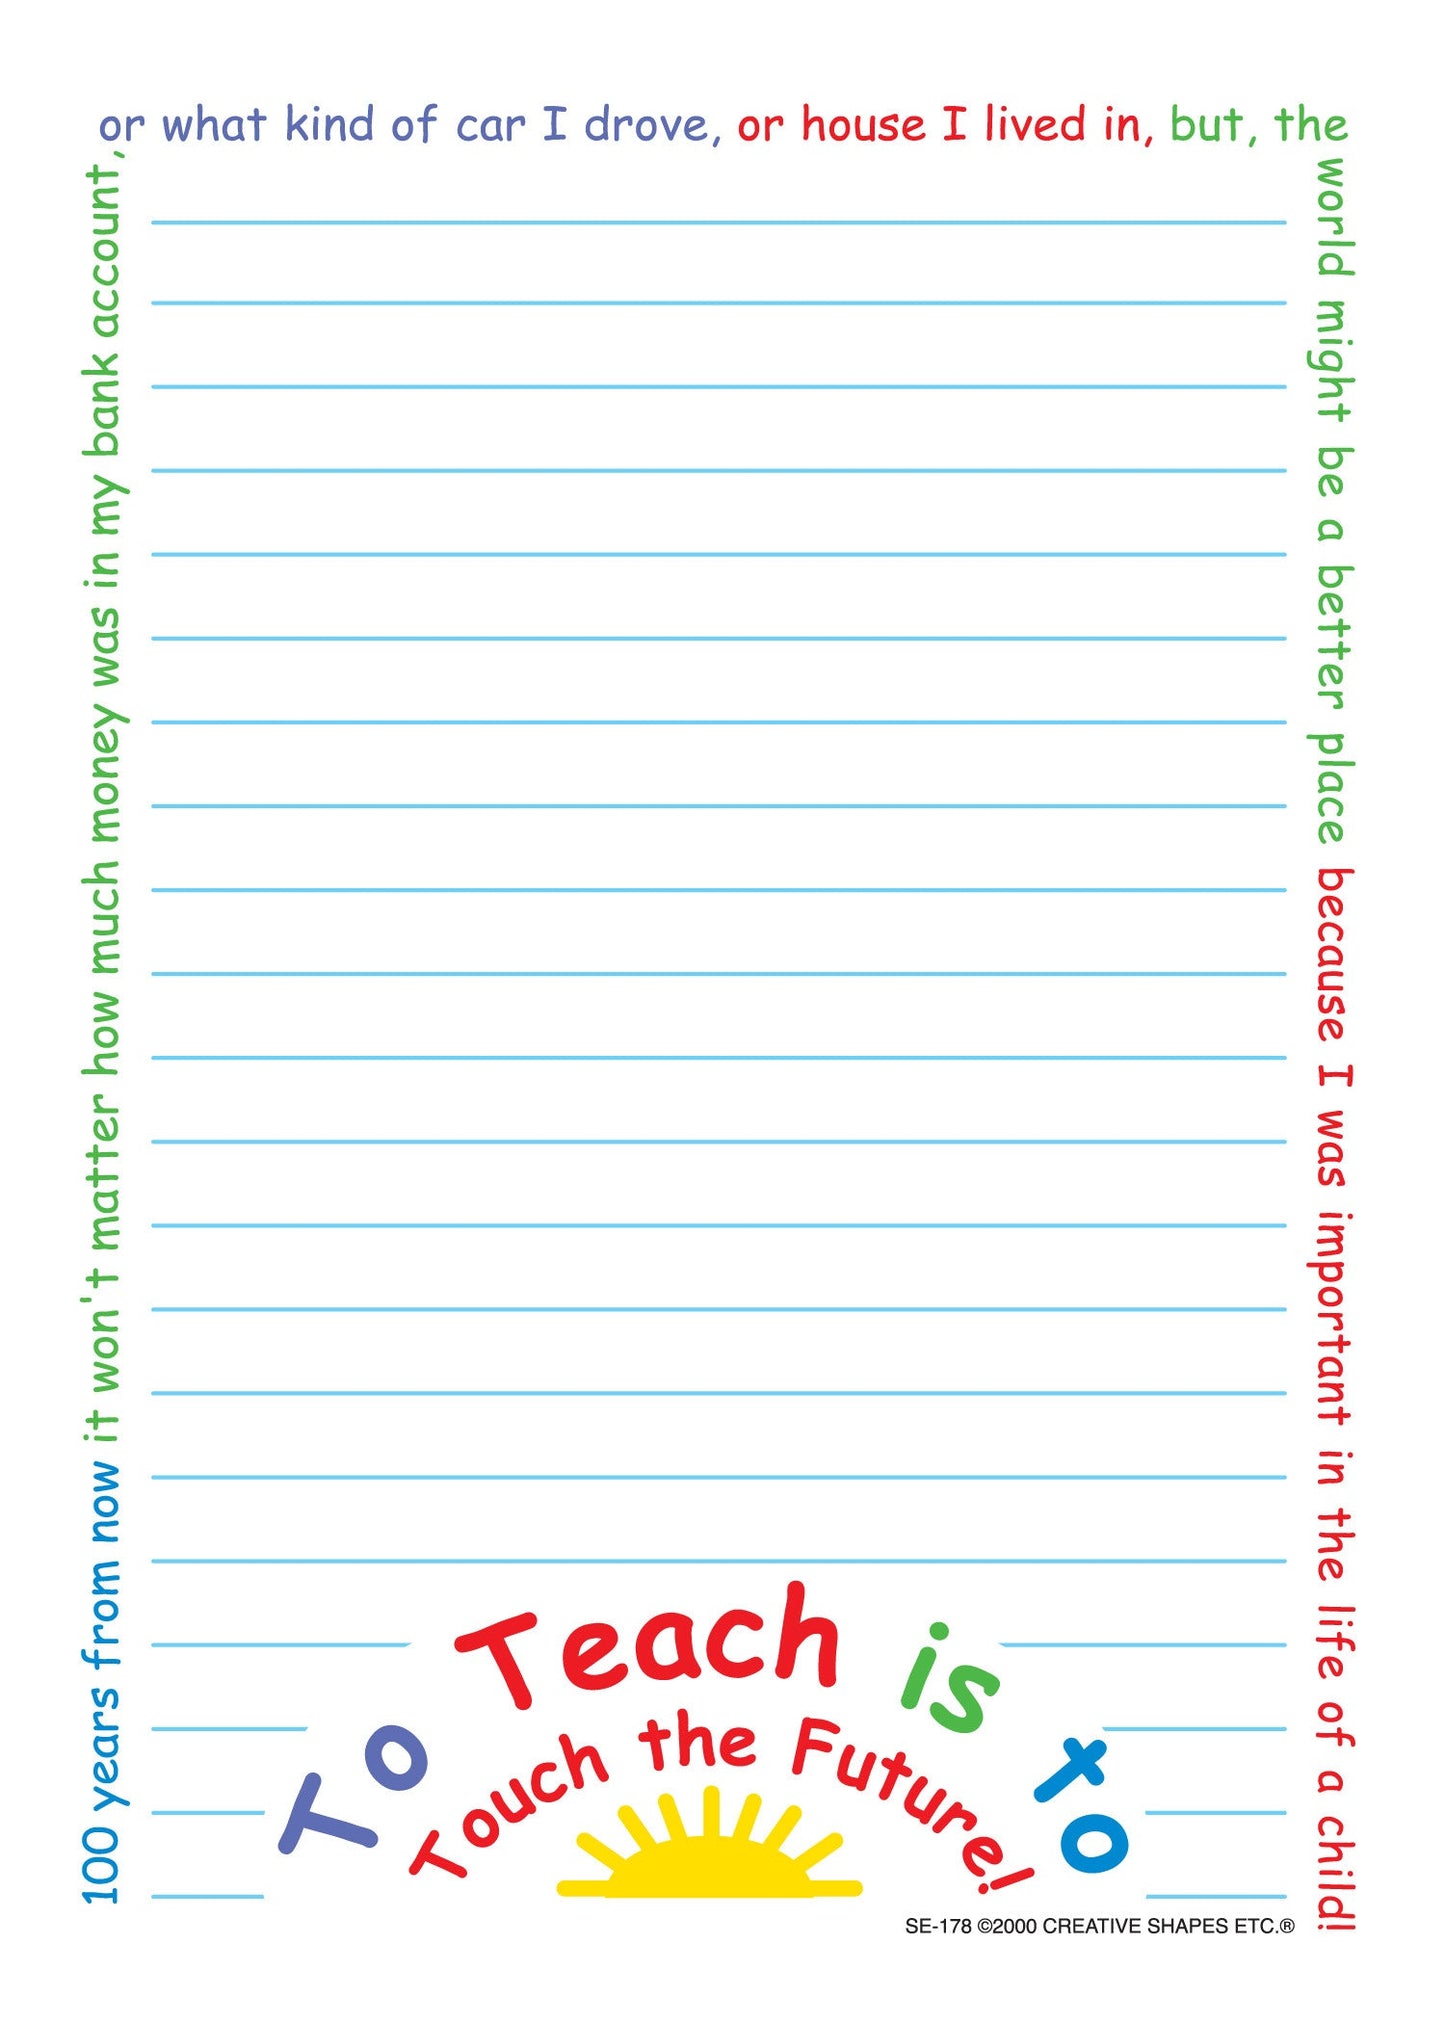 100 years from now it won't matter how much money was in my bank account,
or what kind of car I drove, or house I lived in, but, the
world might be a better place because I was important in the life of a child!
To Teach is to
Touch the Future!
SE-178 ©2000 CREATIVE SHAPES ETC.®